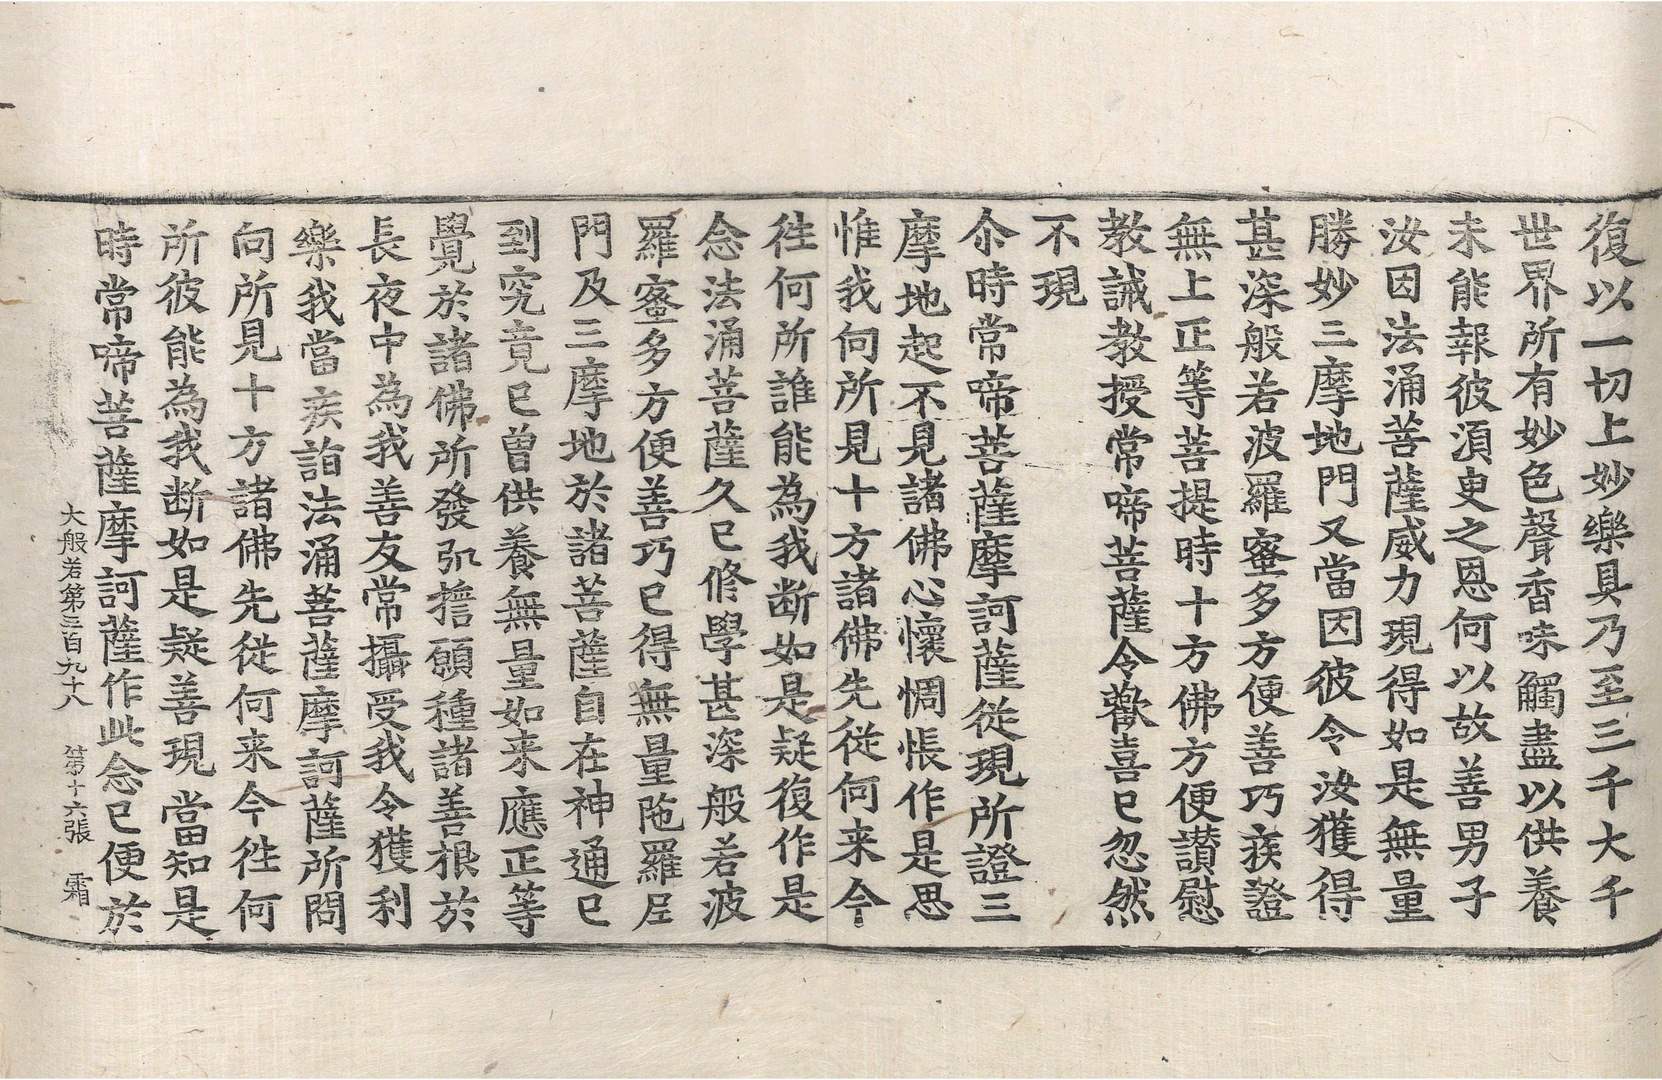 復以一切上妙樂具乃至三千大千
世界所有妙色聲香味觸盡以供養
未能報彼湏臾之恩何以故善男子
汝因法涌菩薩威力現得如是無量
勝妙三摩地門又當因彼令汝獲得
甚深般若波羅蜜多方便善巧疾證
無上正等菩提時十方佛方便讃慰
教誡教授常啼菩薩令歡喜已忽然
不現
尒時常啼菩薩摩訶薩從現所證三
摩地起不見諸佛心懷惆悵作是思
惟我向所見十方諸佛先從何来今
徃何所誰能為我断如是疑復作是
念法涌菩薩久已修學甚深般若波
羅蜜多方便善巧已得無量陁羅尼
門及三摩地於諸菩薩自在神通已
到究竟已曾供養無量如来應正等
覺於諸佛所發弘誓願種諸善根於
長夜中為我善友常攝受我令獲利
樂我當疾詣法涌菩薩摩訶薩所問
向所見十方諸佛先從何来今徃何
所彼能為我断如是疑善現當知是
時常啼菩薩摩訶薩作此念已便於
大般若第三百九十八 第十六張 霜